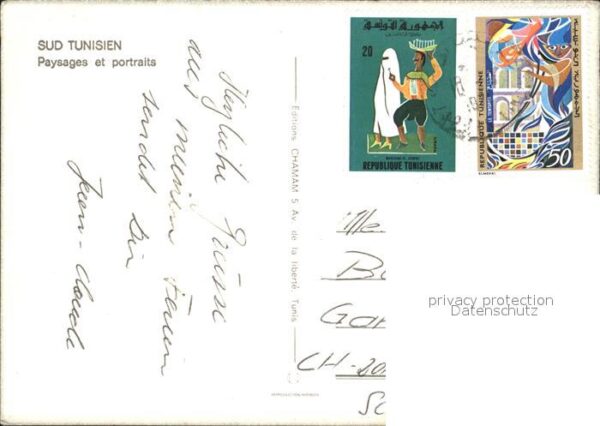 SUD TUNISIEN
Paysages et portraits
Herzliche Grüsse
aus meinen Ferien
sendet Dir
Jean-Claude
Editions CHAMAM 5 Av. de la liberté, Tunis
الجمهورية التونسية
20
REPUBLIQUE TUNISIENNE
الجمهورية التونسية
REPUBLIQUE TUNISIENNE
50
CH-
privacy protection
Datenschutz